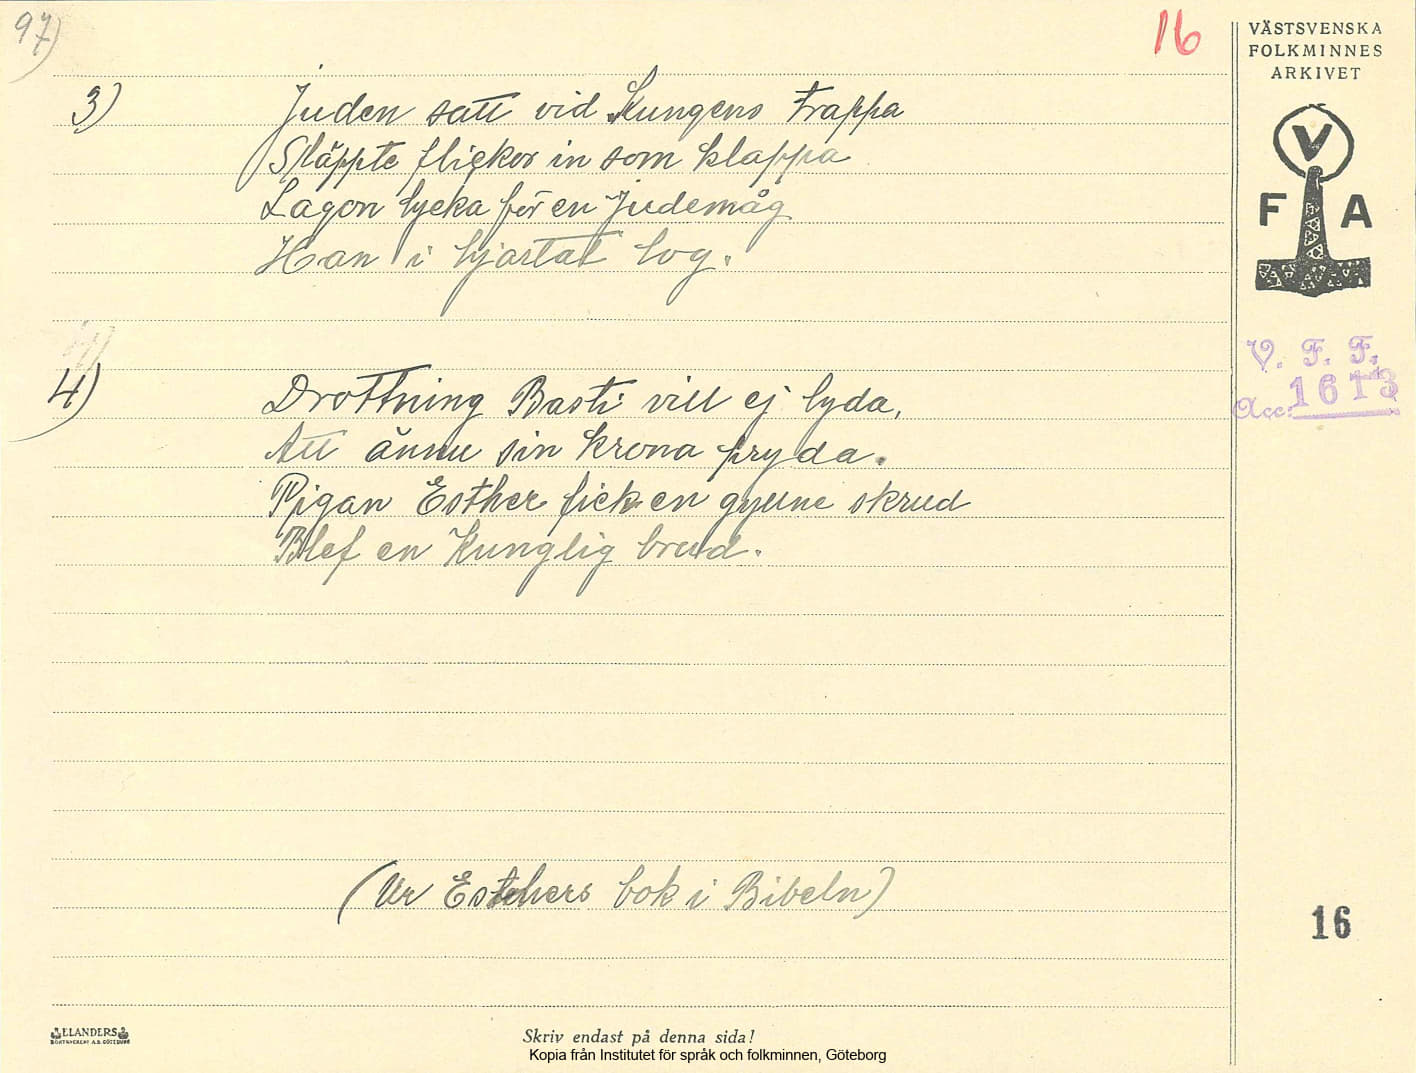 97)
16
VÄSTSVENSKA
FOLKMINNES
ARKIVET
V
F A
3) Juden satt vid Kungens trappa
Släppte flickor in som klappa
Lagon lycka för en Judemåg
Han i hjärtat log.
V. F. F.
Acc: 1613
4) Drottning Basti vill ej lyda,
Att ännu sin krona pryda.
Pigan Esther fick en gyllne skrud
Blef en Kunglig brud.
(Ur Esthers bok i Bibeln)
16
ELANDERS
BOKTRYCKERI A.B. GÖTEBORG
Skriv endast på denna sida!
Kopia från Institutet för språk och folkminnen, Göteborg